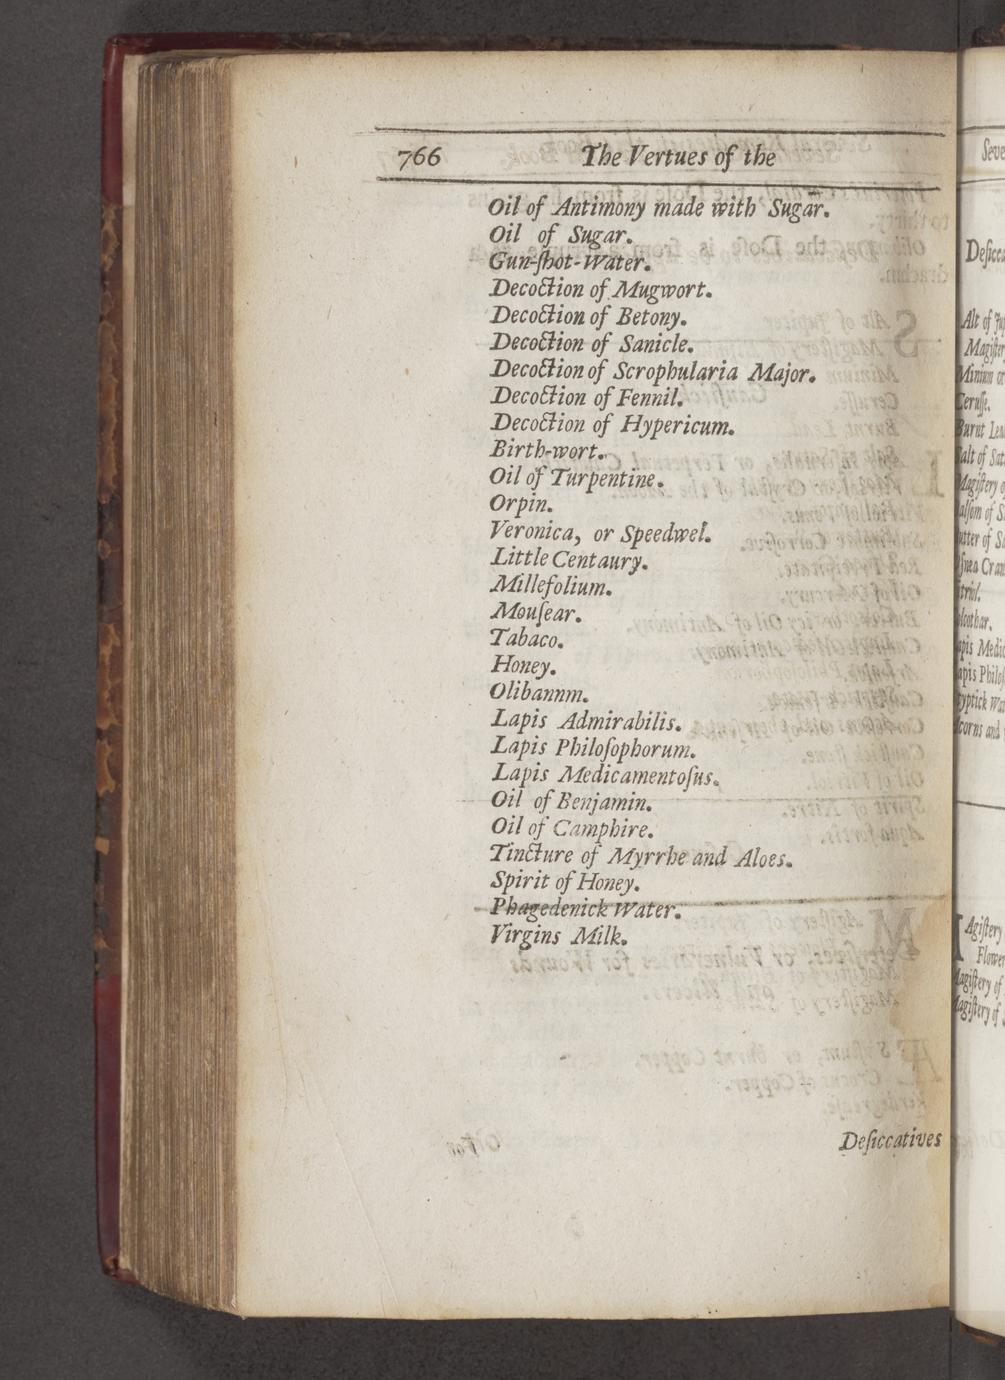 766 The Vertues of the
Oil of Antimony made with Sugar.
Oil of Sugar.
Gun-ſhot-Water.
Decoction of Mugwort.
Decoction of Betony.
Decoction of Sanicle.
Decoction of Scrophularia Major.
Decoction of Fennil.
Decoction of Hypericum.
Birth-wort.
Oil of Turpentine.
Orpin.
Veronica, or Speedwel.
Little Centaury.
Millefolium.
Mouſear.
Tabaco.
Honey.
Olibannm.
Lapis Admirabilis.
Lapis Philoſophorum.
Lapis Medicamentoſus.
Oil of Benjamin.
Oil of Camphire.
Tincture of Myrrhe and Aloes.
Spirit of Honey.
Phagedenick Water.
Virgins Milk.
Deſiccatives